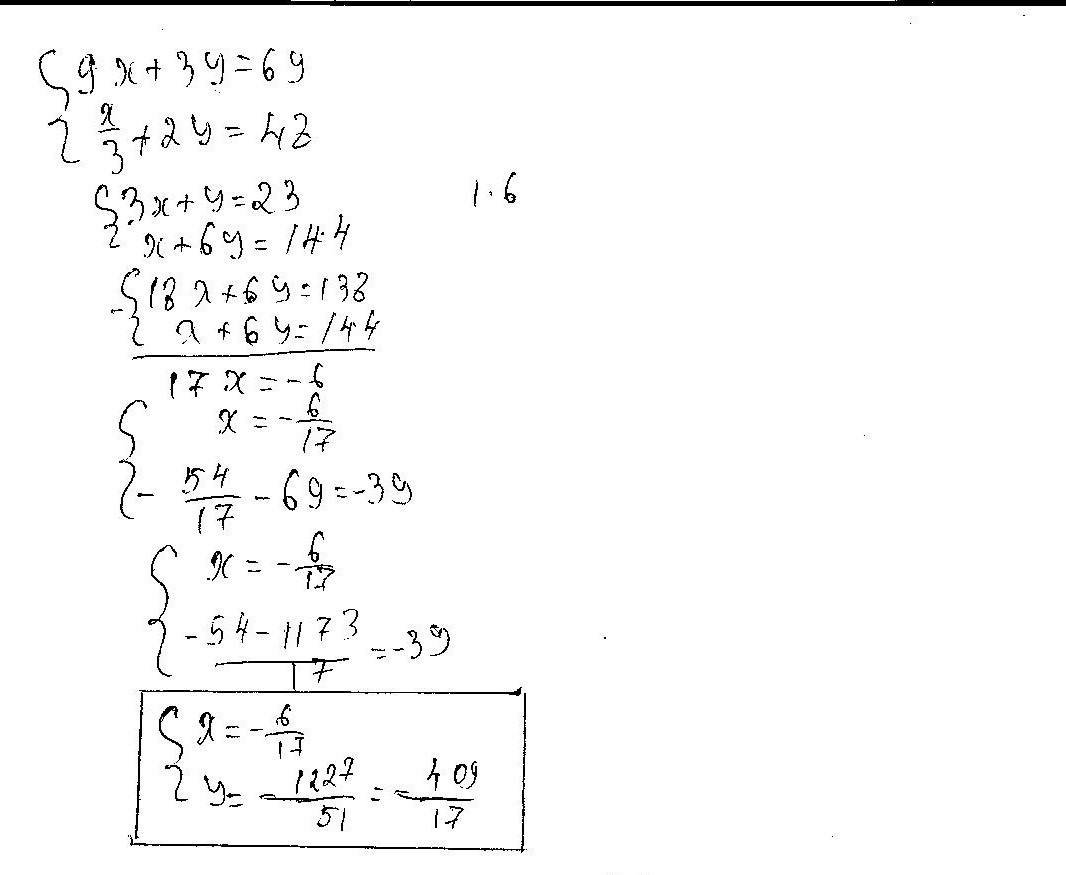 {9x+3y=69
{x/3+2y=48
{3x+y=23 1·6
{x+6y=144
-{18x+6y=138
{x+6y=144
17x=-6
{x=-6/17
{-54/17-69=-39
{x=-6/17
{(-54-1173)/17=-39
{x=-6/17
{y=-1227/51=-409/17